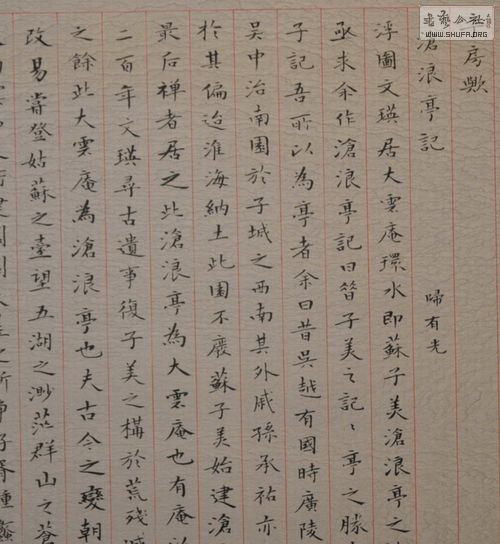 書藝公社
WWW.SHUFA.ORG
房歟
滄浪亭記
歸有光
浮圖文瑛居大雲庵環水即蘇子美滄浪亭之
亟求余作滄浪亭記曰昔子美之記〻亭之勝
子記吾所以為亭者余曰昔吳越有國時廣陵
吳中治南園於子城之西南其外戚孫承祐亦
於其偏迨淮海納土此園不廢蘇子美始建滄
最后禪者居之此滄浪亭為大雲庵也有庵以
二百年文瑛尋古遺事復子美之構於荒殘滅
之餘此大雲庵為滄浪亭也夫古今之變朝
改易嘗登姑蘇之臺望五湖之渺茫群山之蒼